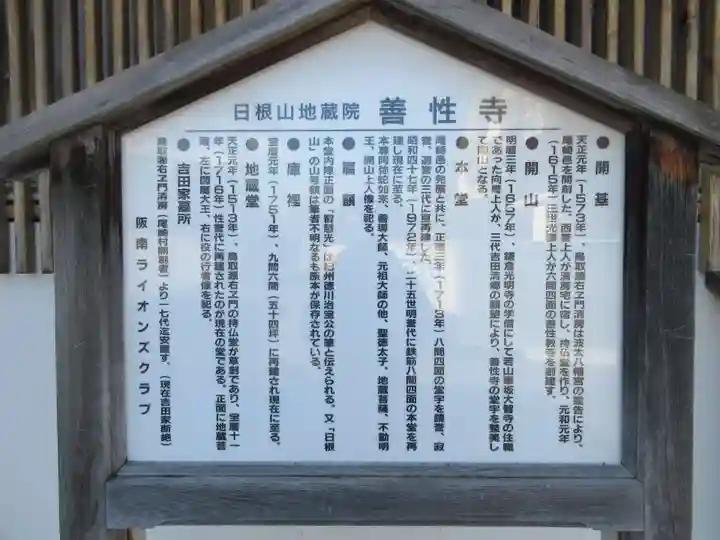 日根山地蔵院 善性寺
●開基
天正元年（1573年）、鳥取瀬右ヱ門清房は波太八幡宮の霊告により、
尾崎邑を開創した。西誉上人が清房宅に宿し、持仏堂を作り、元和元年
（1615年）三世光誉上人が六間四面の善性教寺を創建す。
●開山
明暦三年（1657年）、鎌倉光明寺の学僧にして若山車坂大智寺の住職
であった向誉上人が、三代吉田清郷の願望により、善性寺の堂宇を整美し
て開山となる。
●本堂
尾崎邑の発展と共に、正徳三年（1713年）八間四面の堂宇を鏡誉、寂
誉、選誉の三代に亘再建した。
昭和四十七年（1972年）、二十五世明誉代に鉄筋八間四面の本堂を再
建し現在に至る。
本尊阿弥陀如来、善導大師、元祖大師の他、聖徳太子、地蔵菩薩、不動明
王、開山上人像を祀る。
●扁額
本堂内陣正面の「智慧光」は紀州徳川治宝公の筆と伝えられる。又「日根
山」の山号額は筆者不明なるも原本が保存されている。
●庫裡
宝暦元年（1751年）、九間六間（五十四坪）に再建され現在に至る。
●地蔵堂
天正元年（1513年）、鳥取瀬右ヱ門の持仏堂が草創であり、宝暦十一
年（1716年）性誉代に再建されたのが現在の堂である。正面に地蔵菩
薩、左に閻魔大王、右に役の行者像を祀る。
●吉田家墓所
鳥取瀬右ヱ門清房（尾崎村開創者）より一七代迄安置す。（現在吉田家断絶）
阪南ライオンズクラブ